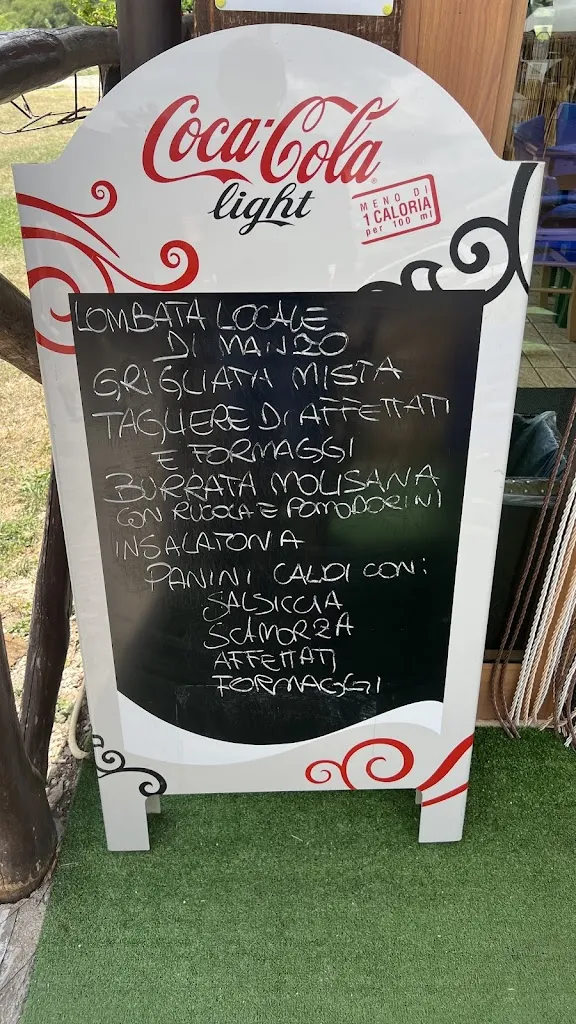 Coca-Cola
light
MENO DI
1 CALORIA
per 100 ml
LOMBATA LOCALE
DI MANZO
GRIGLIATA MISTA
TAGLIERE DI AFFETTATI
E FORMAGGI
BURRATA MOLISANA
CON RUCOLA E POMODORINI
INSALATONA
PANINI CALDI CON:
SALSICCIA
SCAMORZA
AFFETTATI
FORMAGGI